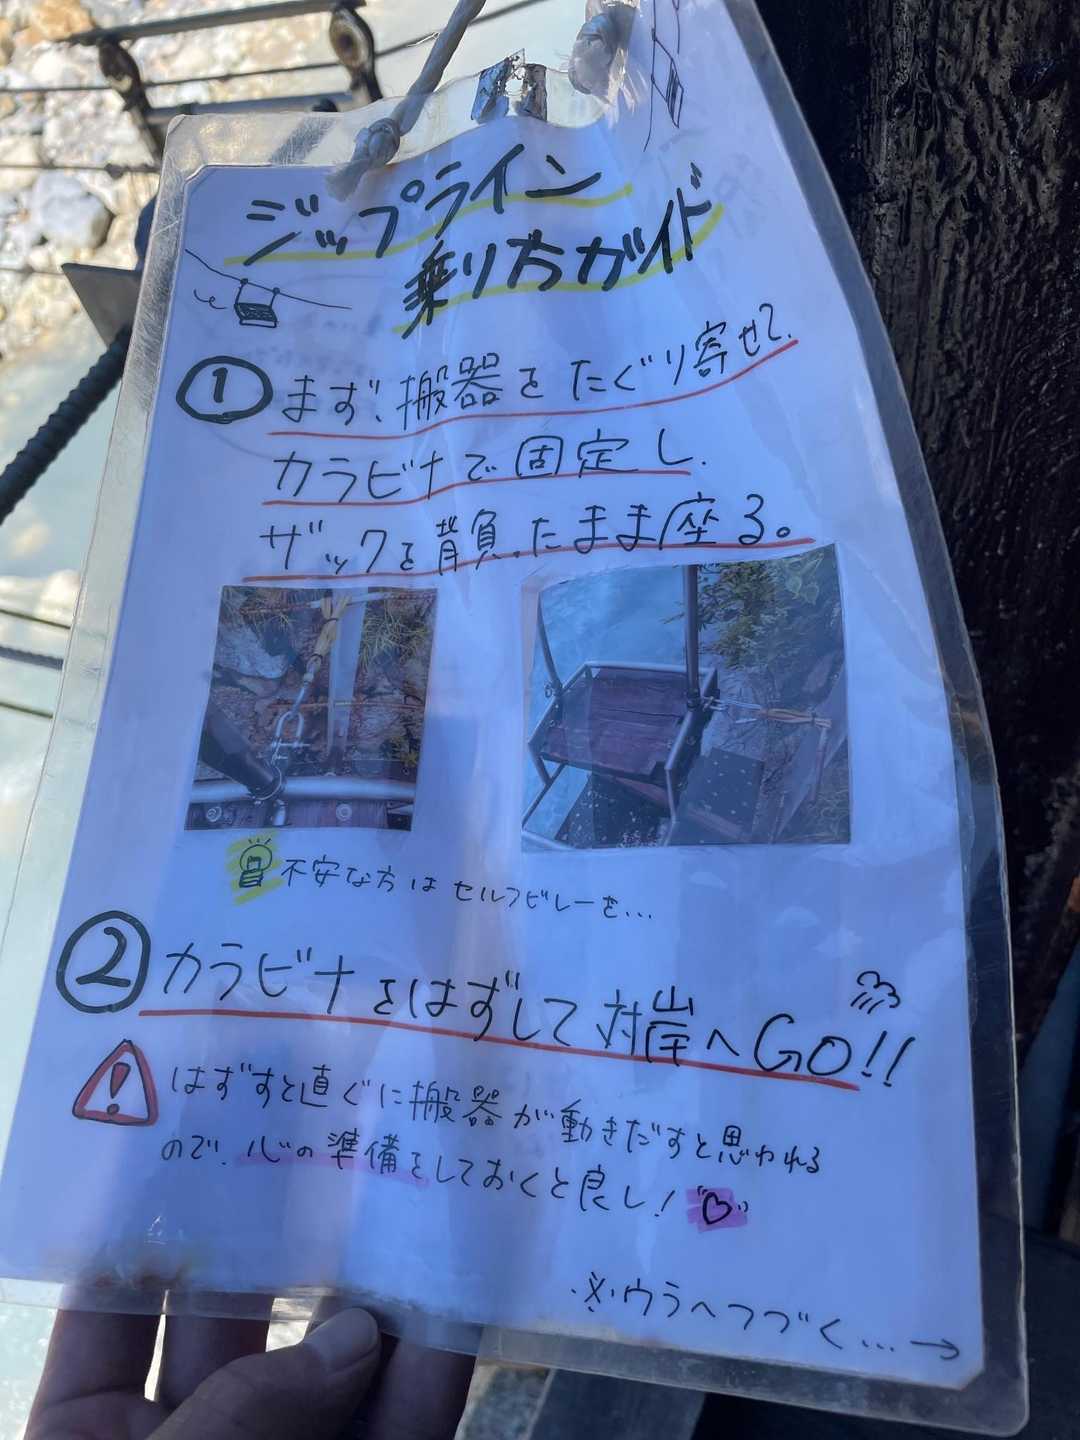 ジップライン
乗り方ガイド
① まず、搬器をたぐり寄せて、
カラビナで固定し、
ザックを背負ったまま座る。
不安な方はセルフビレーを…
② カラビナをはずして対岸へGO!!
はずすと直ぐに搬器が動きだすと思われる
ので、心の準備をしておくと良し!
※ウラへつづく…→